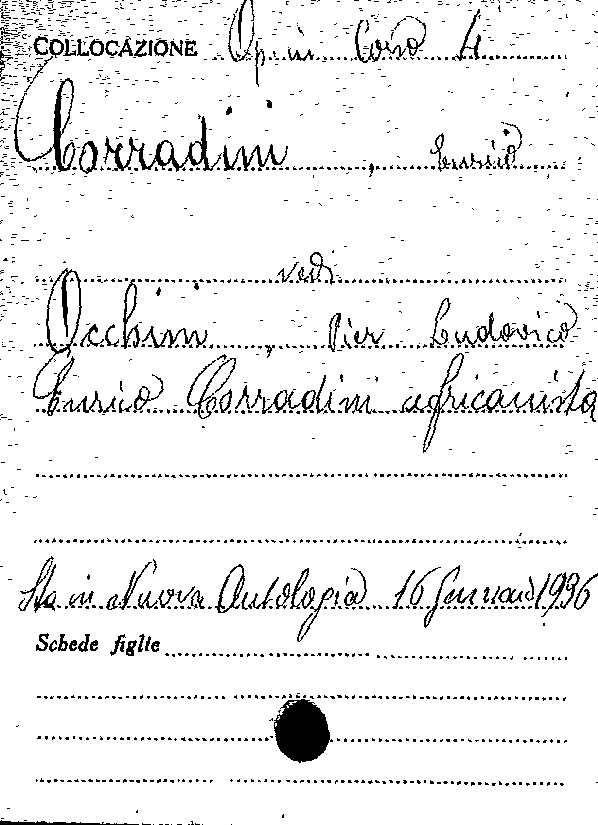 COLLOCAZIONE Op. in Corso 4
Corradini, Enrico
vedi
Occhini, Pier Ludovico
Enrico Corradini africanista
Sta in Nuova Antologia 16 Gennaio 1936
Schede figlie